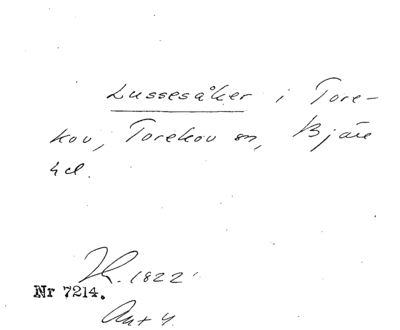 Lussesåker i Tore-
kov, Torekov sn, Bjäre
hd.
1822
Nr 7214.